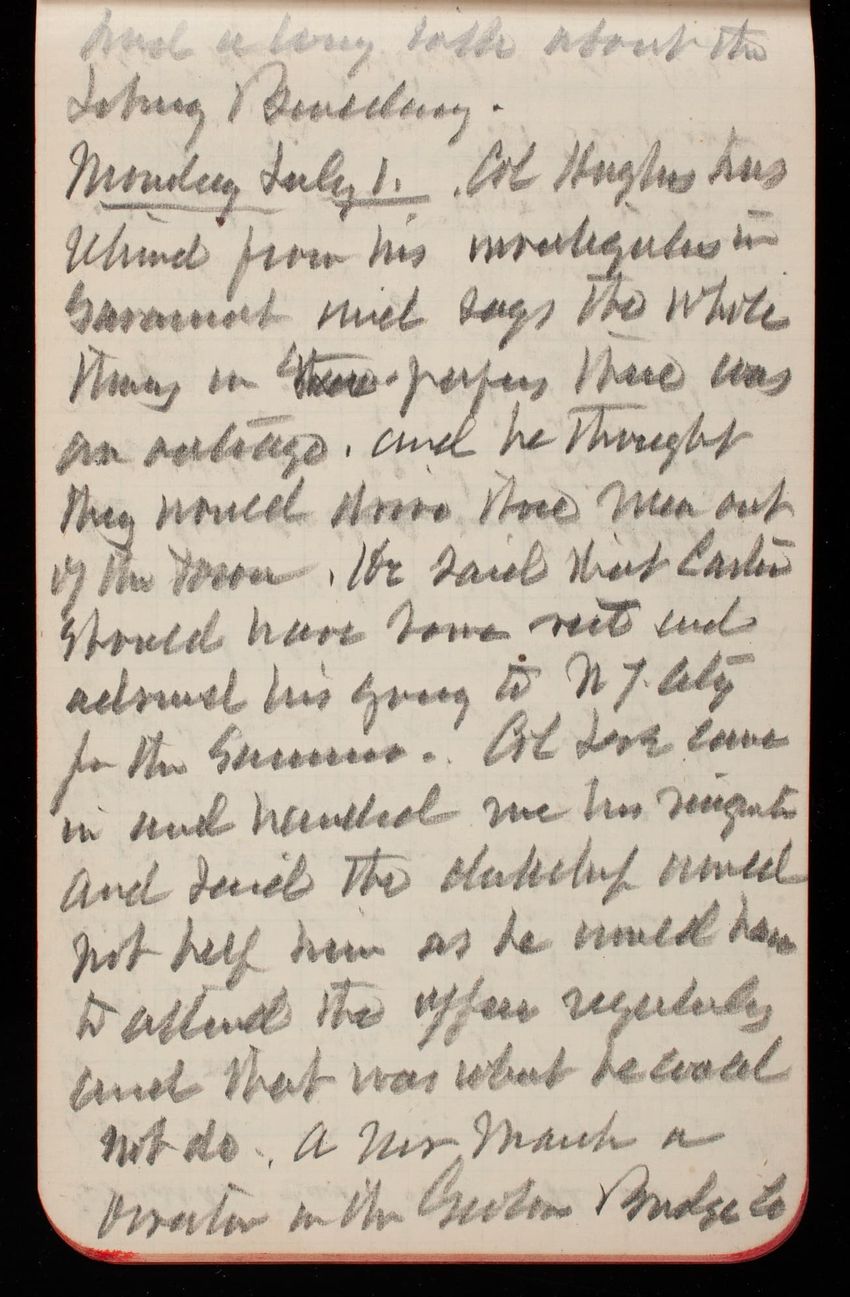 had a long talk about the
Monday July 1. Col Hughes has
from his investigation in
Savannah and says the whole
thing in there there was
an outrage. and he thought
they would drive these men out
of the town. He said that Carter
should have some rest and
advised his going to N Y City
for the Summer. Col came
in and handed me his resignation
and said the clerkship would
not help him as he would have
to attend the office regularly
and that was what he could
not do. A Mr March a
Director in the Bridge Co